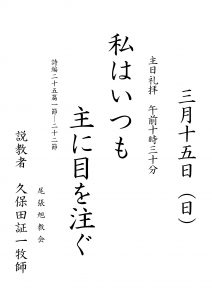 三月十五日（日）
主日礼拝　午前十時三十分
私はいつも
主に目を注ぐ
詩編二十五篇一節―二十二節
尾張旭教会
説教者　久保田証一牧師